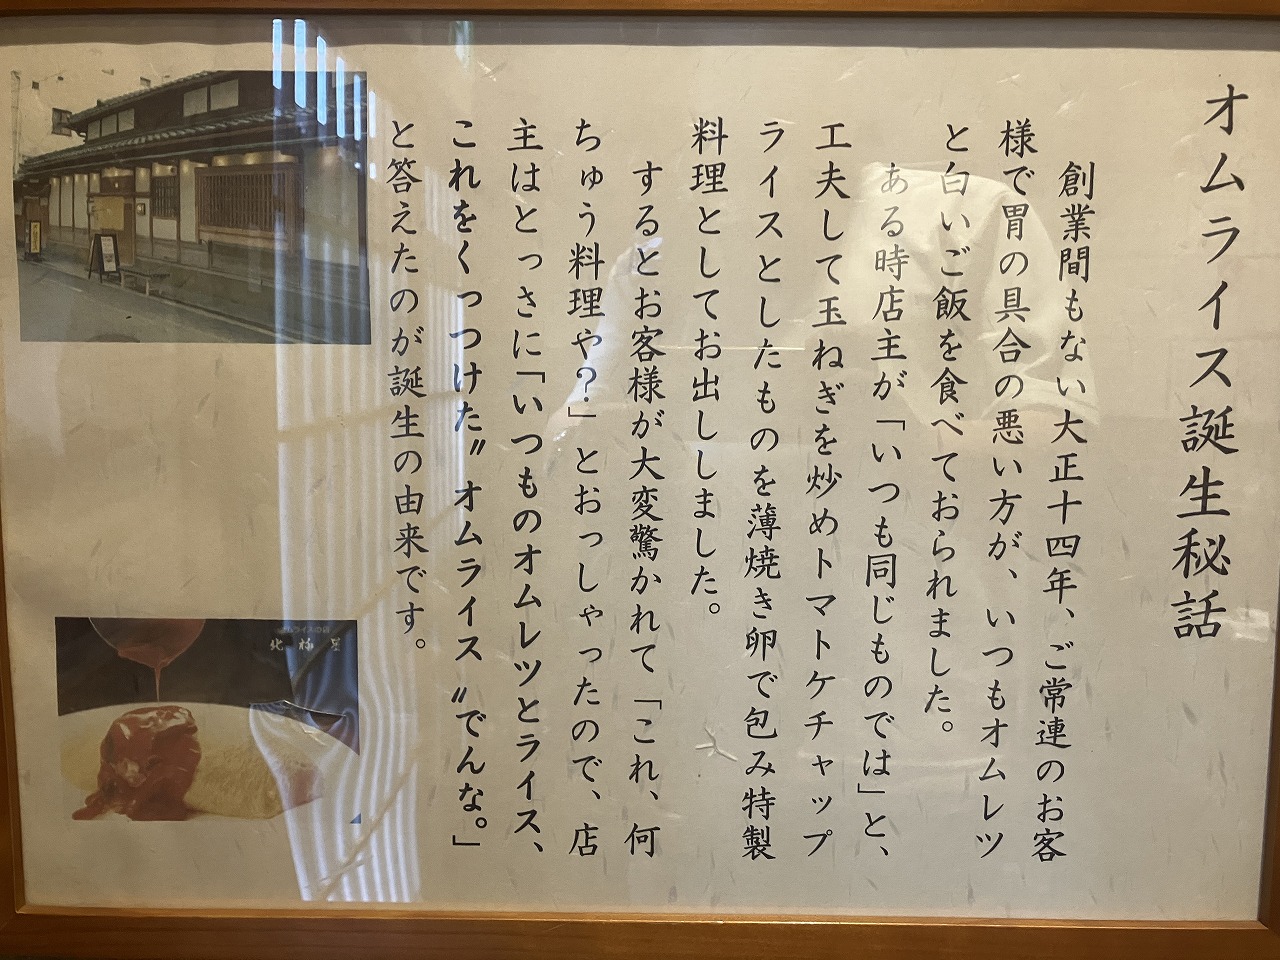 オムライス誕生秘話
創業間もない大正十四年、ご常連のお客
様で胃の具合の悪い方が、いつもオムレツ
と白いご飯を食べておられました。
ある時店主が「いつも同じものでは」と、
工夫して玉ねぎを炒めトマトケチャップ
ライスとしたものを薄焼き卵で包み特製
料理としてお出ししました。
するとお客様が大変驚かれて「これ、何
ちゅう料理や？」とおっしゃったので、店
主はとっさに「いつものオムレツとライス、
これをくっつけた〝オムライス〟でんな。」
と答えたのが誕生の由来です。
オムライスの店
北極星